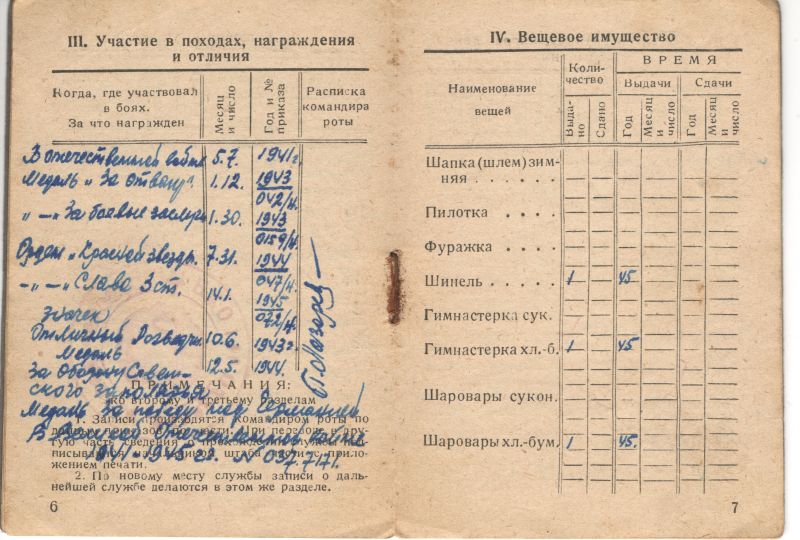 III. Участие в походах, награждения
и отличия
Когда, где участвовал
в боях.
За что награжден
Месяц
и число
Год и №
приказа
Расписка
командира
роты
В отечественной войне 5.7. 1941г.
Медаль „За отвагу" 1.12. 1943
042/н.
„—„ За боевые заслуги 1.30. 1943
0159/н.
Орден „Красной звезды 7.31. 1944
047/н.
„—„ Слава 3 ст. 14.1. 1945
072/н.
Значек
Отличный Разведчик 10.6. 1943г
Медаль 12.5. 1944.
За оборону Совет-
ского заполярья
ПРИМЕЧАНИЯ:
ко второму и третьему разделам
Медаль За победу над Германией
1. Записи производятся командиром роты по
В Великой Отечественной войне
гую часть сведения о прохождении службы
1945 г. N 037.7171.
жением печати.
2. По новому месту службы записи о даль-
нейшей службе делаются в этом же разделе.
6
IV. Вещевое имущество
Наименование
вещей
Коли-
чество
ВРЕМЯ
Выдачи
Сдачи
Выда-
но
Сдано
Год
Месяц
и число
Год
Месяц
и число
Шапка (шлем) зим-
няя . . . . .
Пилотка . . . . .
Фуражка . . . . .
Шинель . . . . . 1 45.
Гимнастерка сук.
Гимнастерка хл.-б. 1 45.
Шаровары сукон.
Шаровары хл.-бум. 1 45.
7